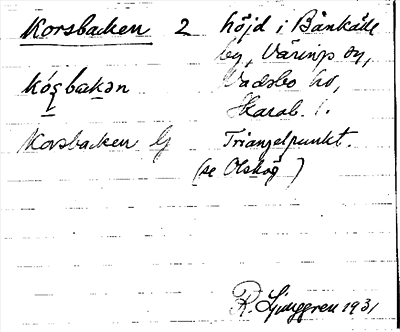 Korsbacken 2 höjd i Bänkälle
by, Värings sn,
Vadsbo hd,
Skarab. l.
Korsbacken Triangelpunkt.
(se Olskog)
R. Ljunggren 1931